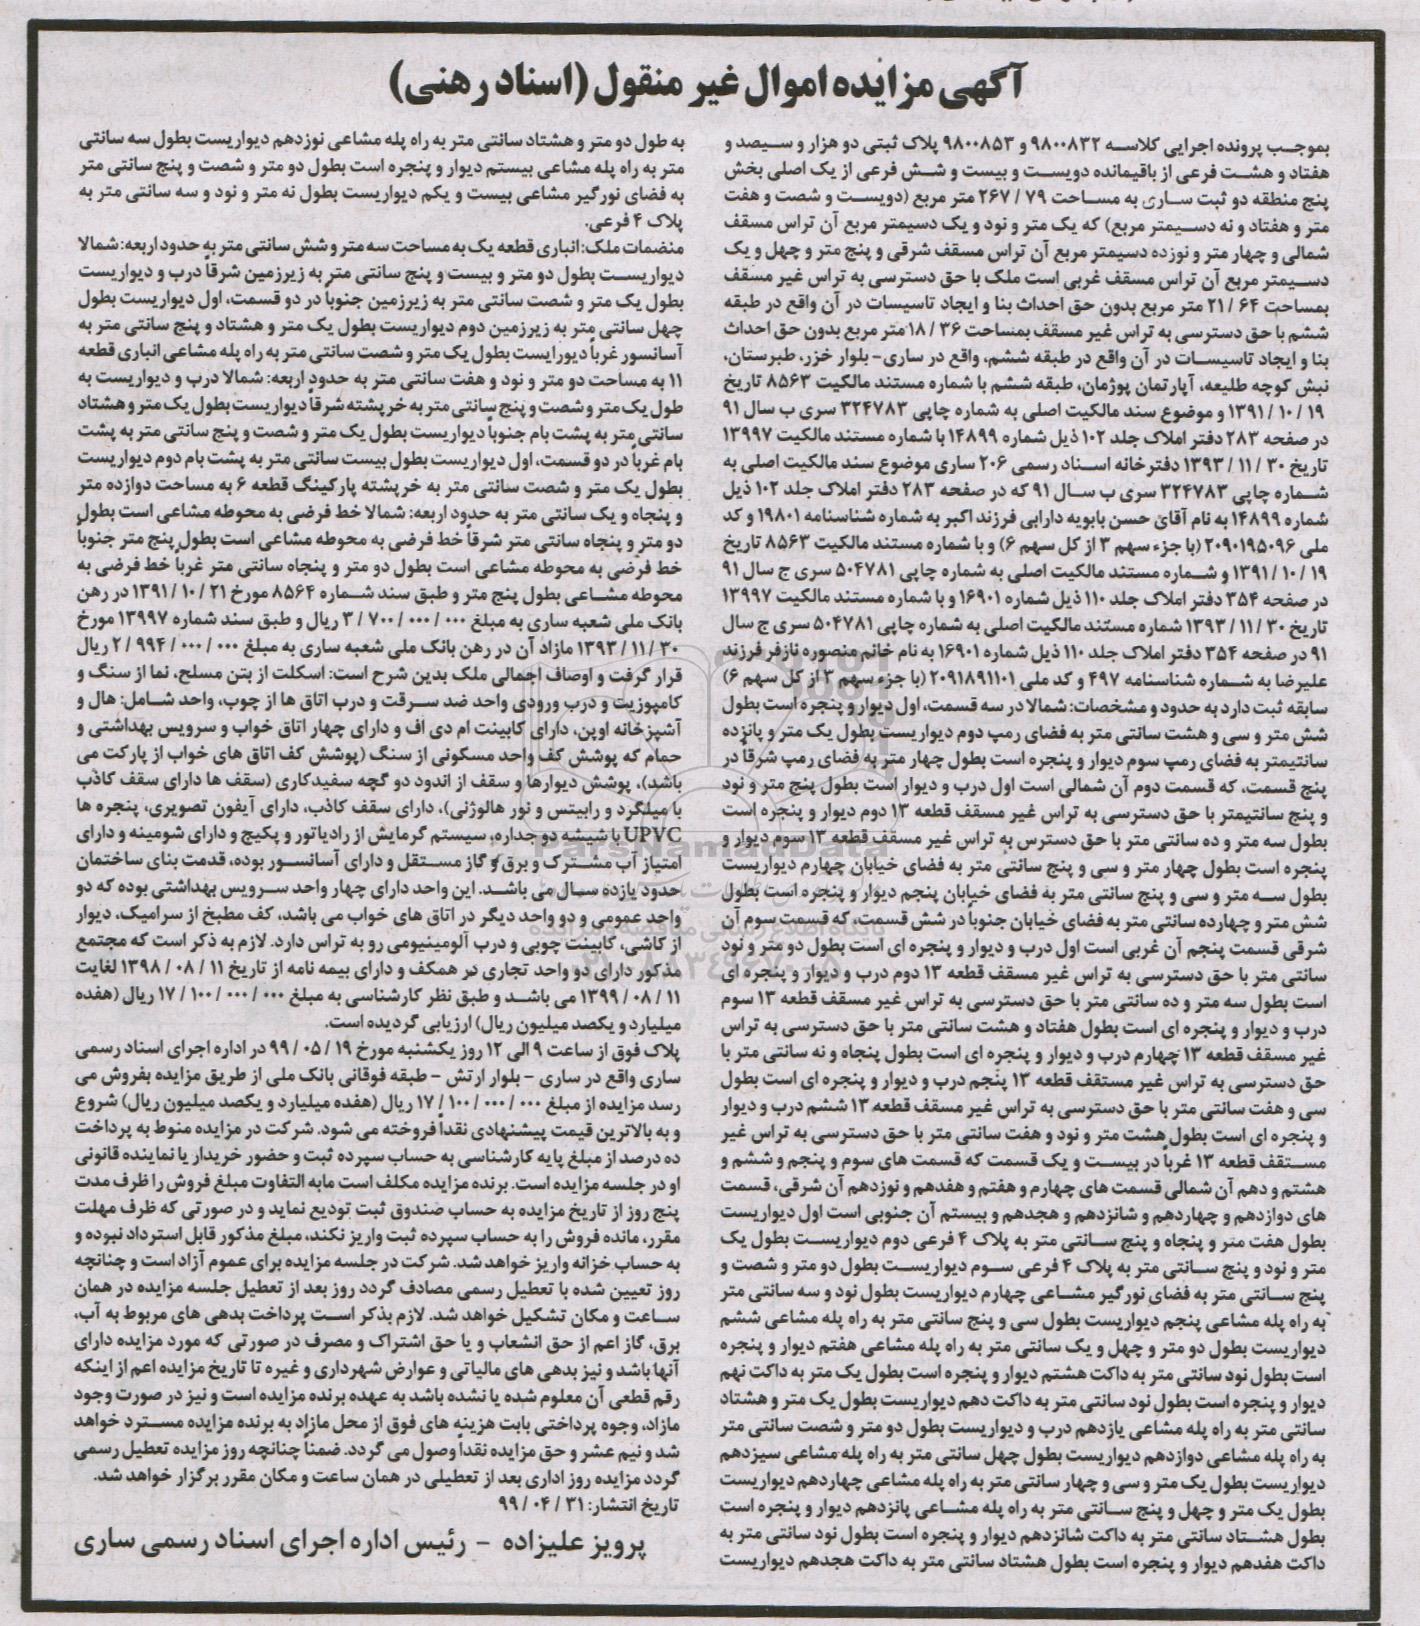 آگهی مزایده اموال غیر منقول (اسناد رهنی)
بموجب پرونده اجرایی کلاسه ۹۸۰۰۸۳۲ و ۹۸۰۰۸۵۳ پلاک ثبتی دو هزار و سیصد و
هفتاد و هشت فرعی از باقیمانده دویست و بیست و شش فرعی از یک اصلی بخش
پنج منطقه دو ثبت ساری به مساحت ۷۹ / ۲۶۷ متر مربع (دویست و شصت و هفت
متر و هفتاد و نه دسیمتر مربع) که یک متر و نود و یک دسیمتر مربع آن تراس مسقف
شمالی و چهار متر و نوزده دسیمتر مربع آن تراس مسقف شرقی و پنج متر و چهل و یک
دسیمتر مربع آن تراس مسقف غربی است ملک با حق دسترسی به تراس غیر مسقف
بمساحت ۶۴ / ۲۱ متر مربع بدون حق احداث بنا و ایجاد تاسیسات در آن واقع در طبقه
ششم با حق دسترسی به تراس غیر مسقف بمساحت ۳۶ / ۱۸ متر مربع بدون حق احداث
بنا و ایجاد تاسیسات در آن واقع در طبقه ششم، واقع در ساری- بلوار خزر، طبرستان،
نبش کوچه طلیعه، آپارتمان پوژمان، طبقه ششم با شماره مستند مالکیت ۸۵۶۳ تاریخ
۱۹ / ۱۰ / ۱۳۹۱ و موضوع سند مالکیت اصلی به شماره چاپی ۳۲۴۷۸۳ سری ب سال ۹۱
در صفحه ۲۸۳ دفتر املاک جلد ۱۰۲ ذیل شماره ۱۴۸۹۹ با شماره مستند مالکیت ۱۳۹۹۷
تاریخ ۳۰ / ۱۱ / ۱۳۹۳ دفترخانه اسناد رسمی ۲۰۶ ساری موضوع سند مالکیت اصلی به
شماره چاپی ۳۲۴۷۸۳ سری ب سال ۹۱ که در صفحه ۲۸۳ دفتر املاک جلد ۱۰۲ ذیل
شماره ۱۴۸۹۹ به نام آقای حسن بابویه دارابی فرزند اکبر به شماره شناسنامه ۱۹۸۰۱ و کد
ملی ۲۰۹۰۱۹۵۰۹۶ (با جزء سهم ۳ از کل سهم ۶) و با شماره مستند مالکیت ۸۵۶۳ تاریخ
۱۹ / ۱۰ / ۱۳۹۱ و شماره مستند مالکیت اصلی به شماره چاپی ۵۰۴۷۸۱ سری ج سال ۹۱
در صفحه ۳۵۴ دفتر املاک جلد ۱۱۰ ذیل شماره ۱۶۹۰۱ و با شماره مستند مالکیت ۱۳۹۹۷
تاریخ ۳۰ / ۱۱ / ۱۳۹۳ شماره مستند مالکیت اصلی به شماره چاپی ۵۰۴۷۸۱ سری ج سال
۹۱ در صفحه ۳۵۴ دفتر املاک جلد ۱۱۰ ذیل شماره ۱۶۹۰۱ به نام خانم منصوره نازفر فرزند
علیرضا به شماره شناسنامه ۴۹۷ و کد ملی ۲۰۹۱۸۹۱۱۰۱ (با جزء سهم ۳ از کل سهم ۶)
سابقه ثبت دارد به حدود و مشخصات: شمالا در سه قسمت، اول دیوار و پنجره است بطول
شش متر و سی و هشت سانتی متر به فضای رمپ دوم دیواریست بطول یک متر و پانزده
سانتیمتر به فضای رمپ سوم دیوار و پنجره است بطول چهار متر به فضای رمپ شرقاً در
پنج قسمت، که قسمت دوم آن شمالی است اول درب و دیوار است بطول پنج متر و نود
و پنج سانتیمتر با حق دسترسی به تراس غیر مسقف قطعه ۱۳ دوم دیوار و پنجره است
بطول سه متر و ده سانتی متر با حق دسترس به تراس غیر مسقف قطعه ۱۳ سوم دیوار و
پنجره است بطول چهار متر و سی و پنج سانتی متر به فضای خیابان چهارم دیواریست
بطول سه متر و سی و پنج سانتی متر به فضای خیابان پنجم دیوار و پنجره است بطول
شش متر و چهارده سانتی متر به فضای خیابان جنوباً در شش قسمت، که قسمت سوم آن
شرقی قسمت پنجم آن غربی است اول درب و دیوار و پنجره ای است بطول دو متر و نود
سانتی متر با حق دسترسی به تراس غیر مسقف قطعه ۱۳ دوم درب و دیوار و پنجره ای
است بطول سه متر و ده سانتی متر با حق دسترسی به تراس غیر مسقف قطعه ۱۳ سوم
درب و دیوار و پنجره ای است بطول هفتاد و هشت سانتی متر با حق دسترسی به تراس
غیر مسقف قطعه ۱۳ چهارم درب و دیوار و پنجره ای است بطول پنجاه و نه سانتی متر با
حق دسترسی به تراس غیر مستقف قطعه ۱۳ پنجم درب و دیوار و پنجره ای است بطول
سی و هفت سانتی متر با حق دسترسی به تراس غیر مسقف قطعه ۱۳ ششم درب و دیوار
و پنجره ای است بطول هشت متر و نود و هفت سانتی متر با حق دسترسی به تراس غیر
مستقف قطعه ۱۳ غرباً در بیست و یک قسمت که قسمت های سوم و پنجم و ششم و
هشتم و دهم آن شمالی قسمت های چهارم و هفتم و هفدهم و نوزدهم آن شرقی، قسمت
های دوازدهم و چهاردهم و شانزدهم و هجدهم و بیستم آن جنوبی است اول دیواریست
بطول هفت متر و پنجاه و پنج سانتی متر به پلاک ۴ فرعی دوم دیواریست بطول یک
متر و نود و پنج سانتی متر به پلاک ۴ فرعی سوم دیواریست بطول دو متر و شصت و
پنج سانتی متر به فضای نورگیر مشاعی چهارم دیواریست بطول نود و سه سانتی متر
به راه پله مشاعی پنجم دیواریست بطول سی و پنج سانتی متر به راه پله مشاعی ششم
دیواریست بطول دو متر و چهل و یک سانتی متر به راه پله مشاعی هفتم دیوار و پنجره
است بطول نود سانتی متر به داکت هشتم دیوار و پنجره است بطول یک متر به داکت نهم
دیوار و پنجره است بطول نود سانتی متر به داکت دهم دیواریست بطول یک متر و هشتاد
سانتی متر به راه پله مشاعی یازدهم درب و دیواریست بطول دو متر و شصت سانتی متر
به راه پله مشاعی دوازدهم دیواریست بطول چهل سانتی متر به راه پله مشاعی سیزدهم
دیواریست بطول یک متر و سی و چهار سانتی متر به راه پله مشاعی چهاردهم دیواریست
بطول یک متر و چهل و پنج سانتی متر به راه پله مشاعی پانزدهم دیوار و پنجره است
بطول هشتاد سانتی متر به داکت شانزدهم دیوار و پنجره است بطول نود سانتی متر به
داکت هفدهم دیوار و پنجره است بطول هشتاد سانتی متر به داکت هجدهم دیواریست
به طول دو متر و هشتاد سانتی متر به راه پله مشاعی نوزدهم دیواریست بطول سه سانتی
متر به راه پله مشاعی بیستم دیوار و پنجره است بطول دو متر و شصت و پنج سانتی متر
به فضای نورگیر مشاعی بیست و یکم دیواریست بطول نه متر و نود و سه سانتی متر به
پلاک ۴ فرعی.
منضمات ملک: انباری قطعه یک به مساحت سه متر و شش سانتی متر به حدود اربعه: شمالا
دیواریست بطول دو متر و بیست و پنج سانتی متر به زیرزمین شرقاً درب و دیواریست
بطول یک متر و شصت سانتی متر به زیرزمین جنوباً در دو قسمت، اول دیواریست بطول
چهل سانتی متر به زیرزمین دوم دیواریست بطول یک متر و هشتاد و پنج سانتی متر به
آسانسور غرباً دیورایست بطول یک متر و شصت سانتی متر به راه پله مشاعی انباری قطعه
۱۱ به مساحت دو متر و نود و هفت سانتی متر به حدود اربعه: شمالا درب و دیواریست به
طول یک متر و شصت و پنج سانتی متر به خرپشته شرقاً دیواریست بطول یک متر و هشتاد
سانتی متر به پشت بام جنوبا دیواریست بطول یک متر و شصت و پنج سانتی متر به پشت
بام غرباً در دو قسمت، اول دیواریست بطول بیست سانتی متر به پشت بام دوم دیواریست
بطول یک متر و شصت سانتی متر به خرپشته پارکینگ قطعه ۶ به مساحت دوازده متر
و پنجاه و یک سانتی متر به حدود اربعه: شمالا خط فرضی به محوطه مشاعی است بطول
دو متر و پنجاه سانتی متر شرقاً خط فرضی به محوطه مشاعی است بطول پنج متر جنوباً
خط فرضی به محوطه مشاعی است بطول دو متر و پنجاه سانتی متر غرباً خط فرضی به
محوطه مشاعی بطول پنج متر و طبق سند شماره ۸۵۶۴ مورخ ۲۱ / ۱۰ / ۱۳۹۱ در رهن
بانک ملی شعبه ساری به مبلغ ۰۰۰ / ۰۰۰ / ۷۰۰ / ۳ ریال و طبق سند شماره ۱۳۹۹۷ مورخ
۳۰ / ۱۱ / ۱۳۹۳ مازاد آن در رهن بانک ملی شعبه ساری به مبلغ ۰۰۰ / ۰۰۰ / ۹۹۴ / ۲ ریال
قرار گرفت و اوصاف اجمالی ملک بدین شرح است: اسکلت از بتن مسلح، نما از سنگ و
کامپوزیت و درب ورودی واحد ضد سرقت و درب اتاق ها از چوب، واحد شامل: هال و
آشپزخانه اوپن، دارای کابینت ام دی اف و دارای چهار اتاق خواب و سرویس بهداشتی و
حمام که پوشش کف واحد مسکونی از سنگ (پوشش کف اتاق های خواب از پارکت می
باشد)، پوشش دیوارها و سقف از اندود دو گچه سفیدکاری (سقف ها دارای سقف کاذب
با میلگرد و رابیتس و نور هالوژنی)، دارای سقف کاذب، دارای آیفون تصویری، پنجره ها
UPVC با شیشه دو جداره، سیستم گرمایش از رادیاتور و پکیج و دارای شومینه و دارای
امتیاز آب مشترک و برق و گاز مستقل و دارای آسانسور بوده، قدمت بنای ساختمان
حدود یازده سال می باشد. این واحد دارای چهار واحد سرویس بهداشتی بوده که دو
واحد عمومی و دو واحد دیگر در اتاق های خواب می باشد، کف مطبخ از سرامیک، دیوار
از کاشی، کابینت چوبی و درب آلومینیومی رو به تراس دارد. لازم به ذکر است که مجتمع
مذکور دارای دو واحد تجاری در همکف و دارای بیمه نامه از تاریخ ۱۱ / ۰۸ / ۱۳۹۸ لغایت
۱۱ / ۰۸ / ۱۳۹۹ می باشد و طبق نظر کارشناسی به مبلغ ۰۰۰ / ۰۰۰ / ۱۰۰ / ۱۷ ریال (هفده
میلیارد و یکصد میلیون ریال) ارزیابی گردیده است.
پلاک فوق از ساعت ۹ الی ۱۲ روز یکشنبه مورخ ۱۹ / ۰۵ / ۹۹ در اداره اجرای اسناد رسمی
ساری واقع در ساری – بلوار ارتش – طبقه فوقانی بانک ملی از طریق مزایده بفروش می
رسد مزایده از مبلغ ۰۰۰ / ۰۰۰ / ۱۰۰ / ۱۷ ریال (هفده میلیارد و یکصد میلیون ریال) شروع
و به بالاترین قیمت پیشنهادی نقداً فروخته می شود. شرکت در مزایده منوط به پرداخت
ده درصد از مبلغ پایه کارشناسی به حساب سپرده ثبت و حضور خریدار یا نماینده قانونی
او در جلسه مزایده است. برنده مزایده مکلف است مابه التفاوت مبلغ فروش را ظرف مدت
پنج روز از تاریخ مزایده به حساب صندوق ثبت تودیع نماید و در صورتی که ظرف مهلت
مقرر، مانده فروش را به حساب سپرده ثبت واریز نکند، مبلغ مذکور قابل استرداد نبوده و
به حساب خزانه واریز خواهد شد. شرکت در جلسه مزایده برای عموم آزاد است و چنانچه
روز تعیین شده با تعطیل رسمی مصادف گردد روز بعد از تعطیل جلسه مزایده در همان
ساعت و مکان تشکیل خواهد شد. لازم بذکر است پرداخت بدهی های مربوط به آب،
برق، گاز اعم از حق انشعاب و یا حق اشتراک و مصرف در صورتی که مورد مزایده دارای
آنها باشد و نیز بدهی های مالیاتی و عوارض شهرداری و غیره تا تاریخ مزایده اعم از اینکه
رقم قطعی آن معلوم شده یا نشده باشد به عهده برنده مزایده است و نیز در صورت وجود
مازاد، وجوه پرداختی بابت هزینه های فوق از محل مازاد به برنده مزایده مسترد خواهد
شد و نیم عشر و حق مزایده نقداً وصول می گردد. ضمناً چنانچه روز مزایده تعطیل رسمی
گردد مزایده روز اداری بعد از تعطیلی در همان ساعت و مکان مقرر برگزار خواهد شد.
تاریخ انتشار: ۳۱ / ۰۴ / ۹۹
پرویز علیزاده – رئیس اداره اجرای اسناد رسمی ساری
ParsNamadData
پایگاه اطلاع رسانی مناقصه و مزایده